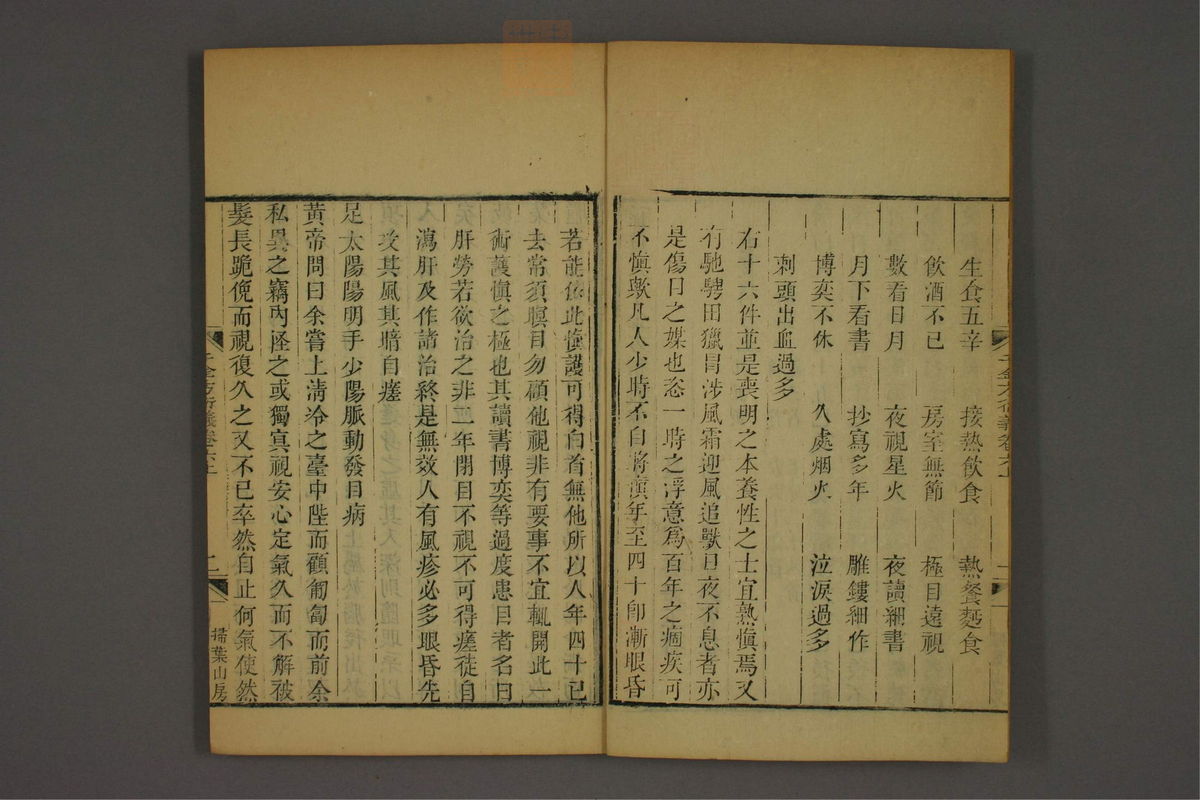 生食五辛 接熱飲食 熱餐麫食
飲酒不已 房室無節 極目遠視
數看日月 夜視星火 夜讀細書
月下看書 抄寫多年 雕鏤細作
博奕不休 久處烟火 泣淚過多
刺頭出血過多
右十六件並是喪明之本養性之士宜熟慎焉又
有馳騁田獵冒涉風霜迎風追獸日夜不息者亦
是傷目之媒也恣一時之浮意為百年之痼疾可
不慎歟凡人少時不自將慎年至四十即漸眼昏
若能依此慎護可得白首無他所以人年四十已
去常須瞑目勿顧他視非有要事不宜輒開此一
術護慎之極也其讀書博奕等過度患目者名曰
肝勞若欲治之非三年閉目不視不可得瘥徒自
瀉肝及作諸治終是無效人有風疹必多眼昏先
攻其風其暗自瘥
足太陽陽明手少陽脈動發目病
黃帝問曰余嘗上清泠之臺中陛而顧匍匐而前余
私異之竊內怪之或獨冥視安心定氣久而不解被
髮長跪俛而視復久之又不已卒然自止何氣使然
千金方衍義卷六上
二
掃葉山房